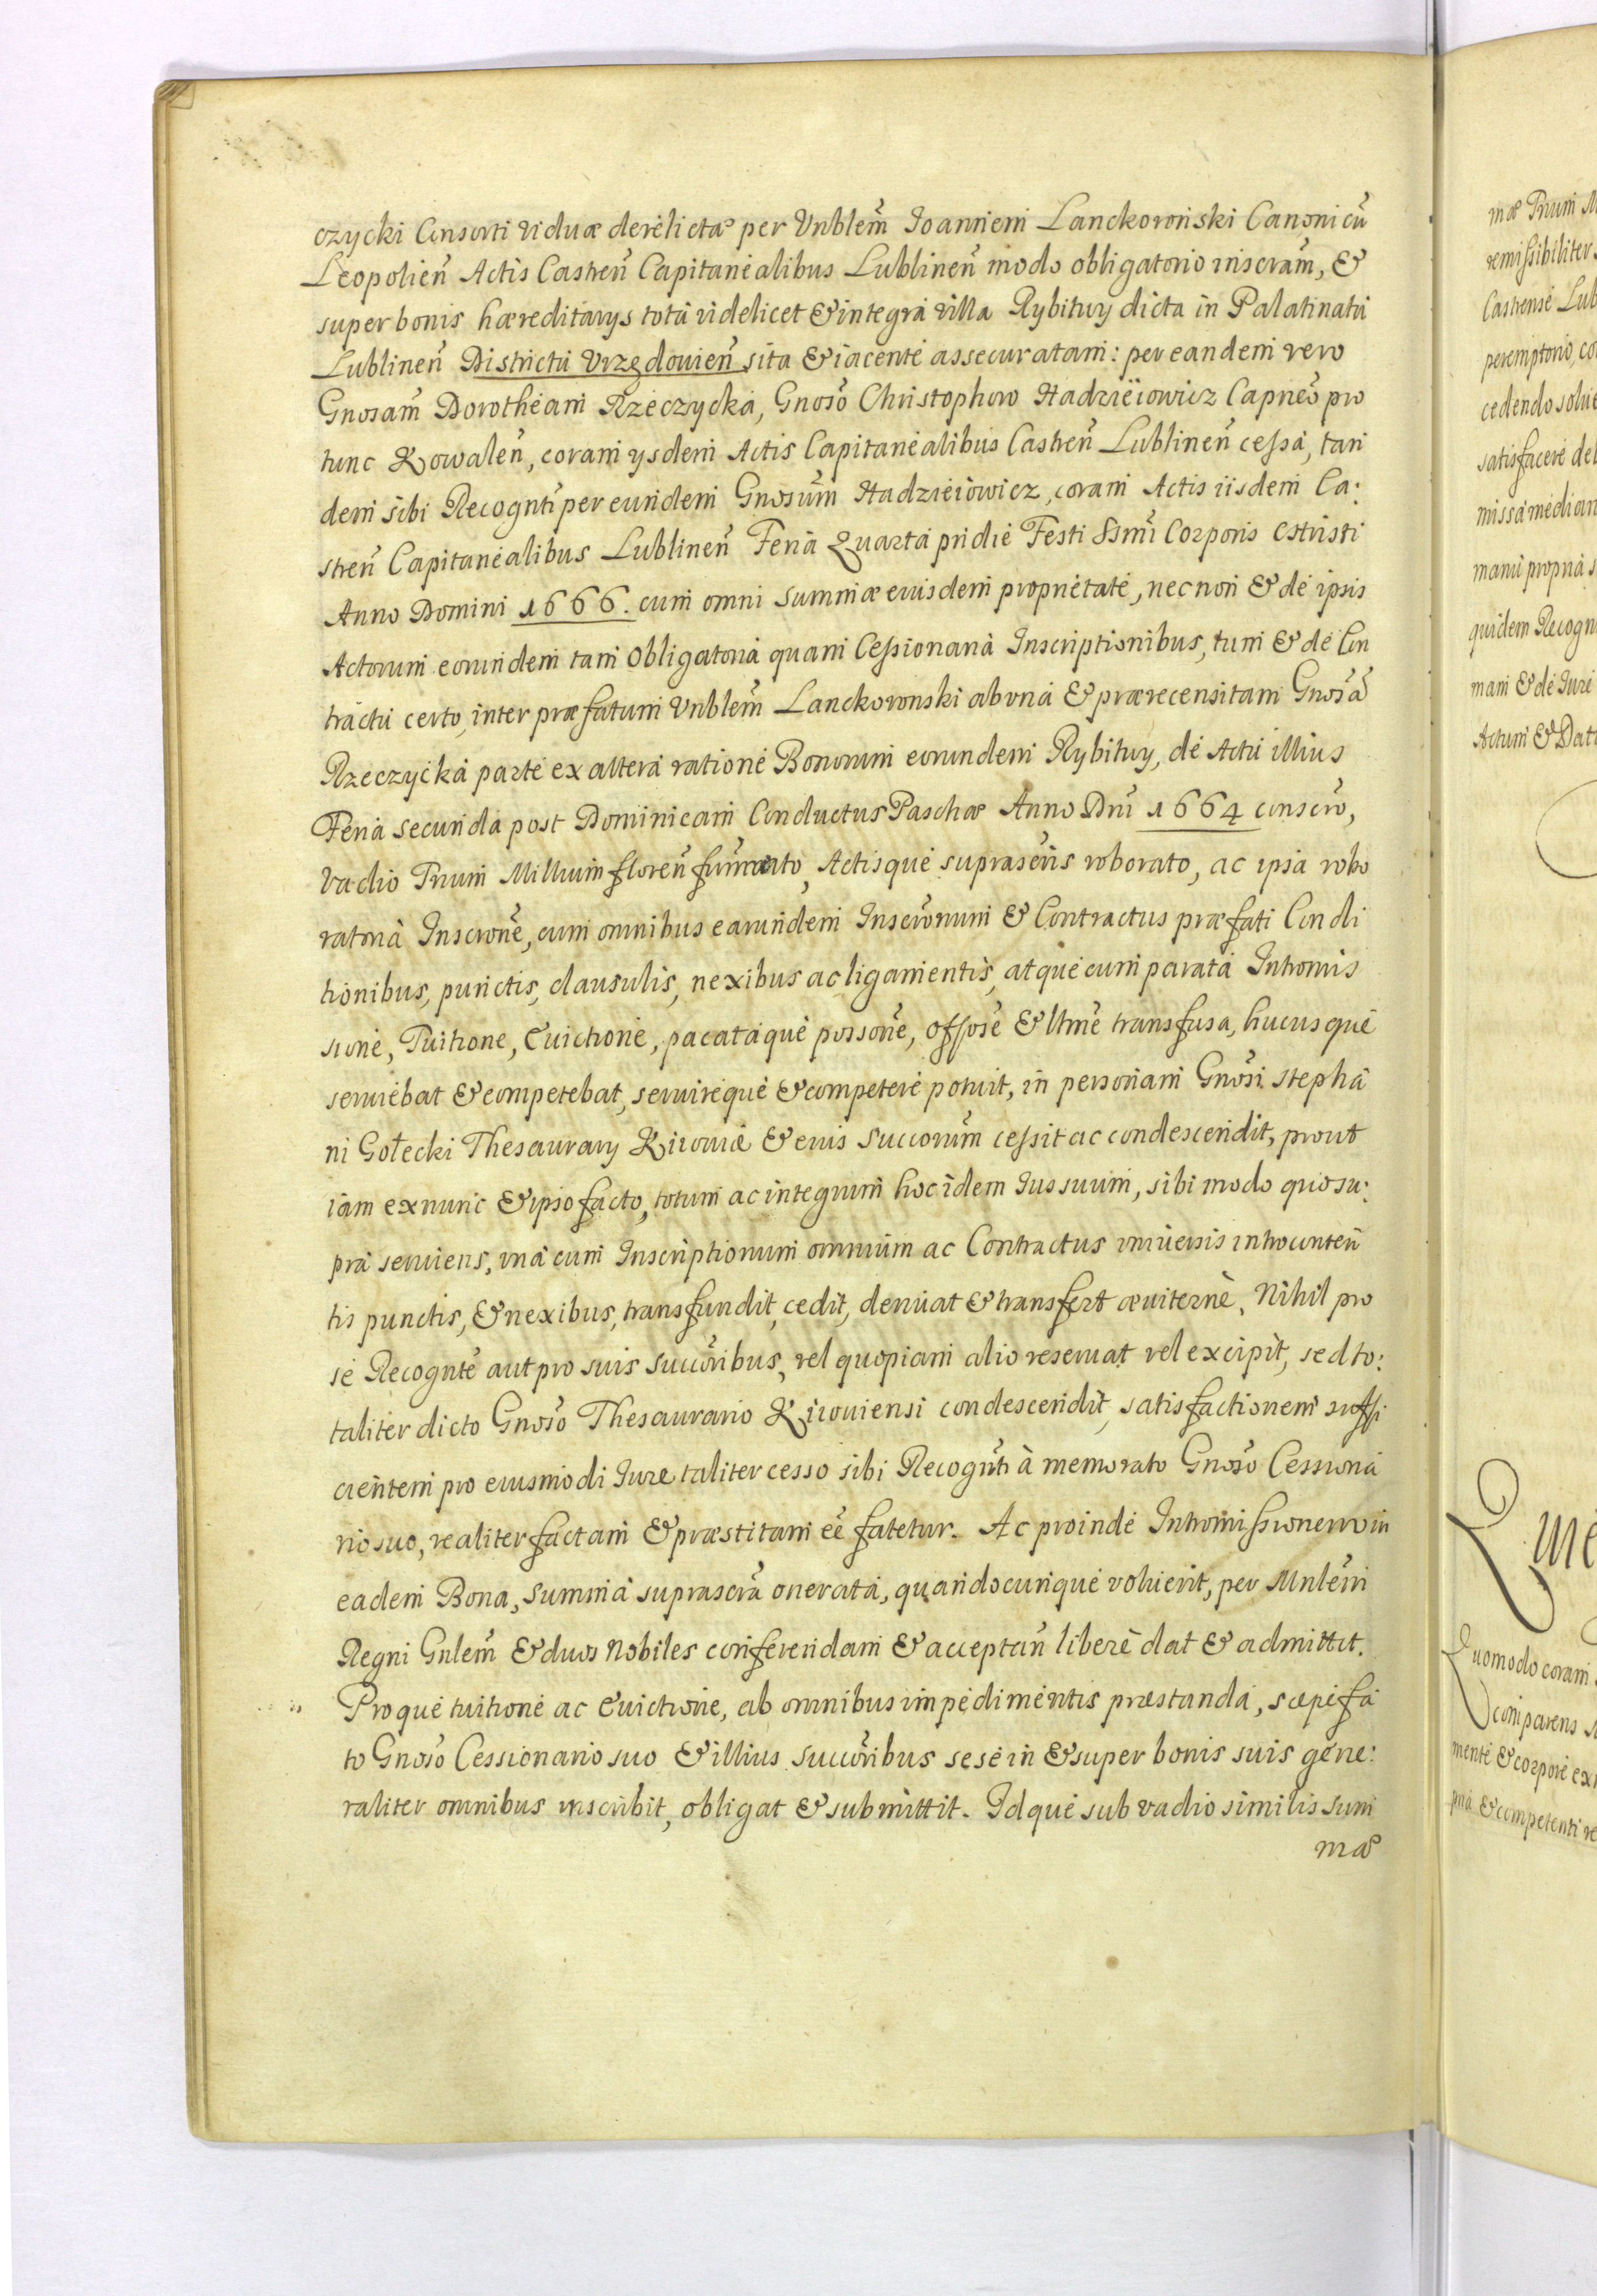 czycki Consorti viduæ derelictæ per Vnblem̃ Joannem Lanckoroński Canonicũ
Leopolien̄ Actis Castren̄ Capitanealibus Lublinen̄ modo obligatorio inscram̃, &
super bonis hæreditarys totâ videlicet & integrâ villa Rybitwy dicta in Palatinatu
Lublinen̄ Districtu Vrzędouien̄ sita & iacente assecuratam: per eandem vero
Gnosam̃ Dorotheam Rzeczycka, Gnoso̅ Christophoro Hadzieiowicz Capneo̅ pro
tunc Kowalen̄, coram ysdem Actis Capitanealibus Castren̄ Lublinen̄ cessa, tan
dem sibi Recognti̅ per eundem Gnosum̃ Hadzieiowicz coram Actis iisdem Ca:
stren̄ Capitanealibus Lublinen̄ Feria Quarta pridie Festi SSmi̅ Corporis Christi
Anno Domini 1666. cum omni summæ eiusdem proprietate, nec non & de ipsis
Actorum eorundem tam Obligatoria quam Cessionaria Inscriptionibus, tum & de Con
tractu certo, inter præfatum Vnblem̃ Lanckoronski ab vna & prærecensitam Gnosã
Rzeczycka parte ex altera ratione Bonorum eorundem Rybitwy, de Actu illius
Feria secunda post Dominicam Conductus Paschæ Anno Dni̅ 1664 conscro̅,
Vadio Trium Millium floren̄ firmato, Actisque suprascris̅ roborato, ac ipsa robo
ratoria Inscrone̅, cum omnibus earundem Inscronum̅ & Contractus præfati Condi
tionibus, punctis, clausulis, nexibus ac ligamentis, atque cum parata Intromis
sione, Tuitione, Euictione, pacataque possone̅, offose̅ & ltme̅ transfusa, hucusque
seruiebat & competebat, seruireque & competere potuit, in personam Gnosi̅ Stepha
ni Gołecki Thesaurary Kiiouiæ & eius Succorum̅ cessit ac condescendit, prout
iam ex nunc & ipso facto, totum ac integrum hoc idem Jus suum, sibi modo quo su:
pra seruiens, vna cum Inscriptionum omnium ac Contractus vniuersis introconten̄
tis punctis, & nexibus, transfundit, cedit, deriuat & transfert æuiternè, Nihil pro
se Recognte̅ aut pro suis succoribus̅, vel quopiam alio reseruat vel excipit, sed to:
taliter dicto Gnoso̅ Thesaurario Kiiouiensi condescendit, satisfactionem suffi
cientem pro eiusmodi Jure taliter cesso sibi Recognti̅ à memorato Gnoso̅ Cessiona
rio suo, realiter factam & præstitam ee̅ fatetur. Ac proinde Intromissionem in
eadem Bona, summa suprascra̅ onerata, quandocunque voluerit, per Mnlem̃
Regni Gnlem̃ & duos Nobiles conferendam & acceptan̄ liberè dat & admittit.
Proque tuitione ac Euictione, ab omnibus impedimentis præstanda, sæpefa
to Gnoso̅ Cessionario suo & illius succoribus̅ sese in & super bonis suis gene:
raliter omnibus inscribit, obligat & submittit. Idque sub vadio similis sum
mæ